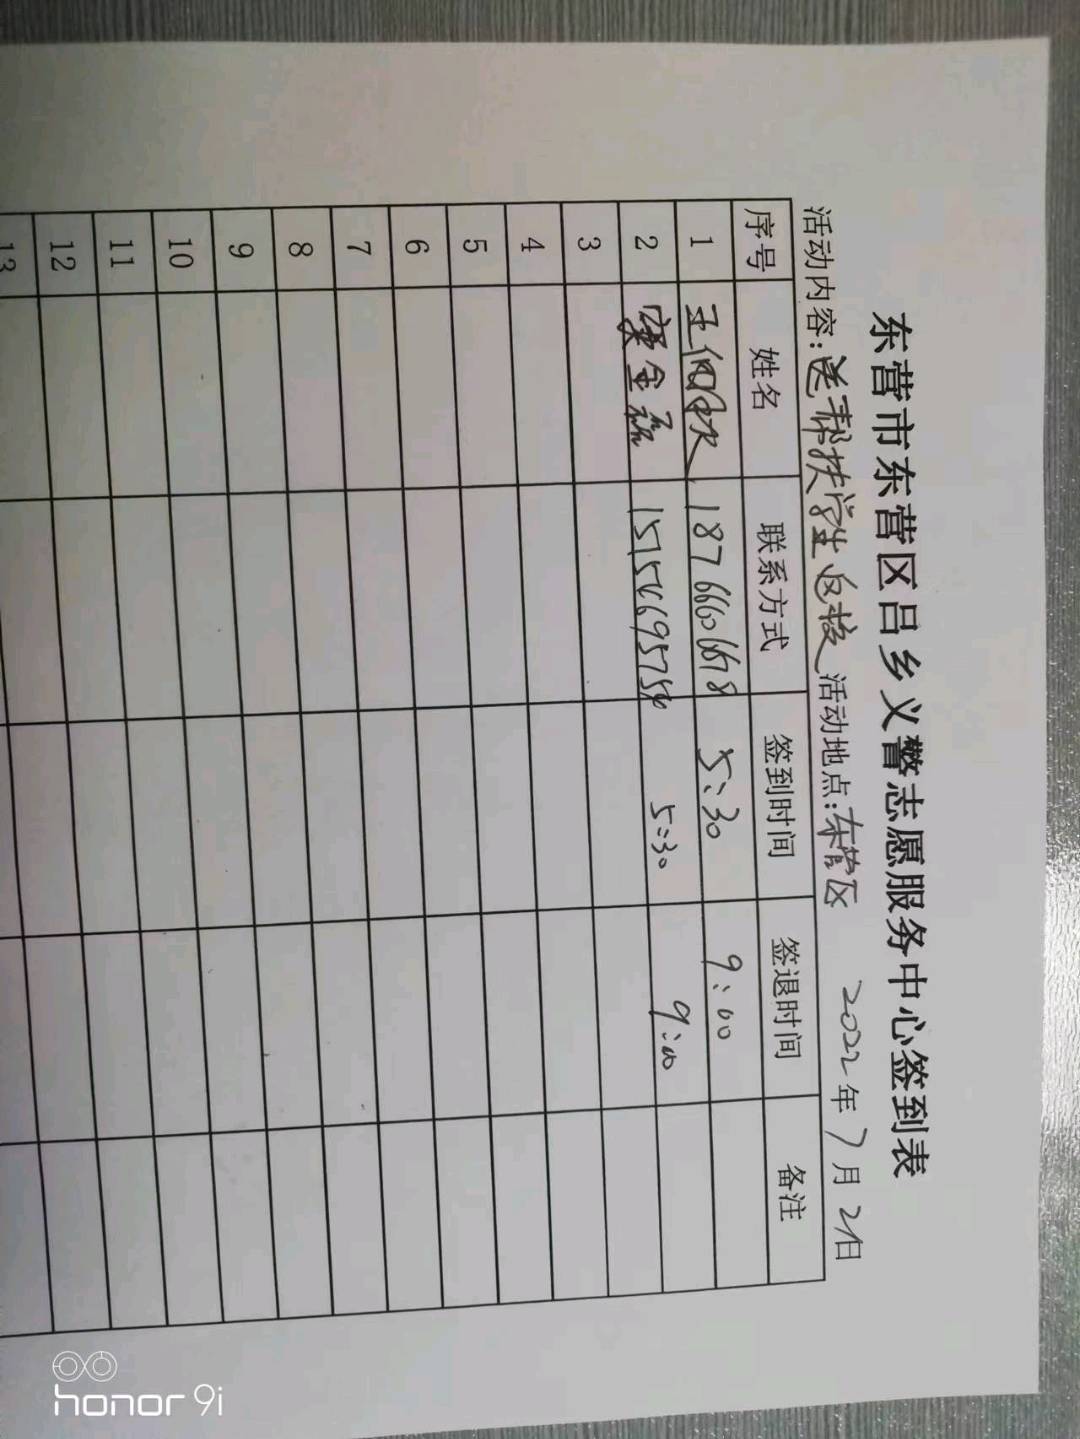 东营市东营区吕乡义警志愿服务中心签到表
活动内容:送帮扶学生返校 活动地点:东营区 2022年7月21日
序号 姓名 联系方式 签到时间 签退时间 备注
1 18766606678 5:30 9:00
2 15154695754 5:30 9:00
3
4
5
6
7
8
9
10
11
12
13
honor 9i